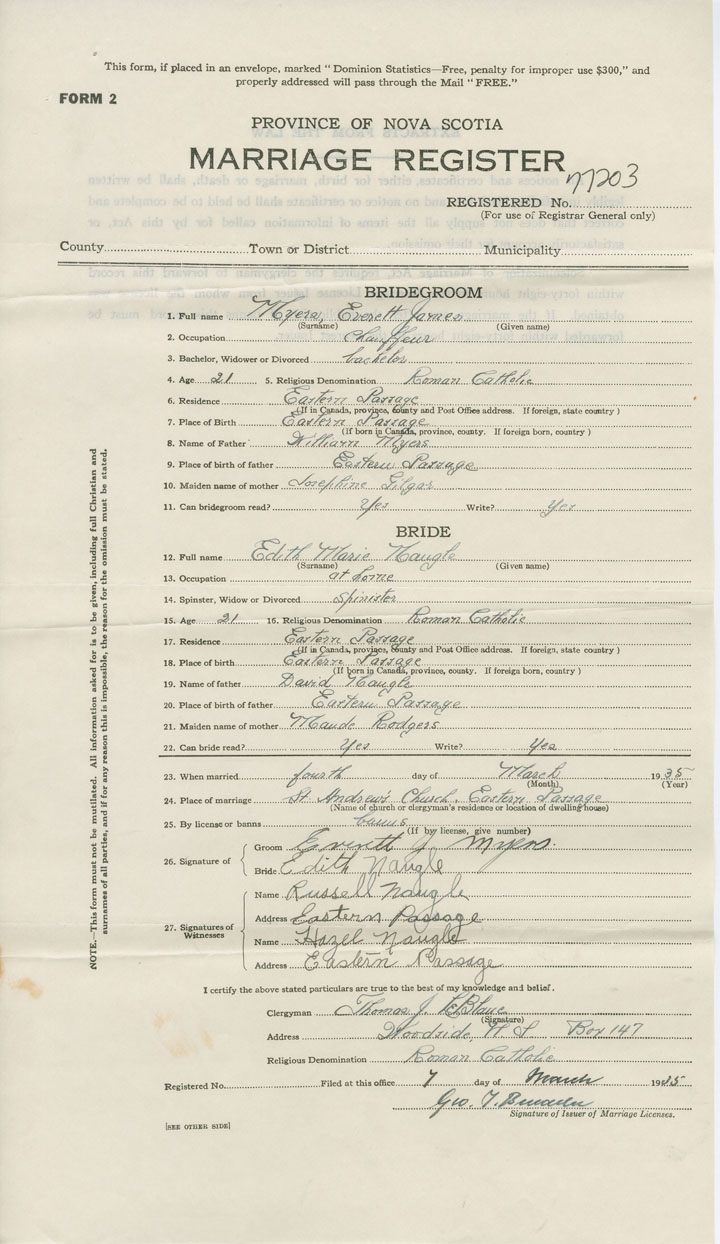 This form, if placed in an envelope, marked " Dominion Statistics—Free, penalty for improper use $300," and
properly addressed will pass through the Mail " FREE."
FORM 2
PROVINCE OF NOVA SCOTIA
MARRIAGE REGISTER
REGISTERED No. 77203
(For use of Registrar General only)
County Town or District Municipality
BRIDEGROOM
1. Full name Myers, Everett James
(Surname) (Given name)
2. Occupation Chauffeur
3. Bachelor, Widower or Divorced bachelor
4. Age 21 5. Religious Denomination Roman Catholic
6. Residence Eastern Passage
(If in Canada, province, county and Post Office address. If foreign, state country )
7. Place of Birth Eastern Passage
(If born in Canada, province, county. If foreign born, country )
8. Name of Father William Myers
9. Place of birth of father Eastern Passage
10. Maiden name of mother Josephine
11. Can bridegroom read? Yes Write? Yes
BRIDE
12. Full name Edith Marie Naugle
(Surname) (Given name)
13. Occupation at home
14. Spinster, Widow or Divorced Spinister
15. Age 21 16. Religious Denomination Roman Catholic
17. Residence Eastern Passage
(If in Canada, province, county and Post Office address. If foreign, state country )
18. Place of birth Eastern Passage
(If born in Canada, province, county. If foreign born, country )
19. Name of father David Naugle
20. Place of birth of father Eastern Passage
21. Maiden name of mother Maude Rodgers
22. Can bride read? Yes Write? Yes
23. When married fourth day of March 1935
(Month) (Year)
24. Place of marriage St. Andrew's Church, Eastern Passage
(Name of church or clergyman's residence or location of dwelling house)
25. By license or banns banns
(If by license, give number)
26. Signature of
Groom Everett J. Myers.
Bride Edith Naugle
27. Signatures of Witnesses
Name Russell Naugle
Address Eastern Passage
Name Hazel Naugle
Address Eastern Passage
I certify the above stated particulars are true to the best of my knowledge and belief.
Clergyman Thomas J.
(Signature)
Address Woodside, N S Box 147
Religious Denomination Roman Catholic
Registered No. Filed at this office 7 day of March 1935
Geo. T.
Signature of Issuer of Marriage Licenses.
[SEE OTHER SIDE]
NOTE.—This form must not be mutilated. All information asked for is to be given, including full Christian and
surnames of all parties, and if for any reason this is impossible, the reason for the omission must be stated.